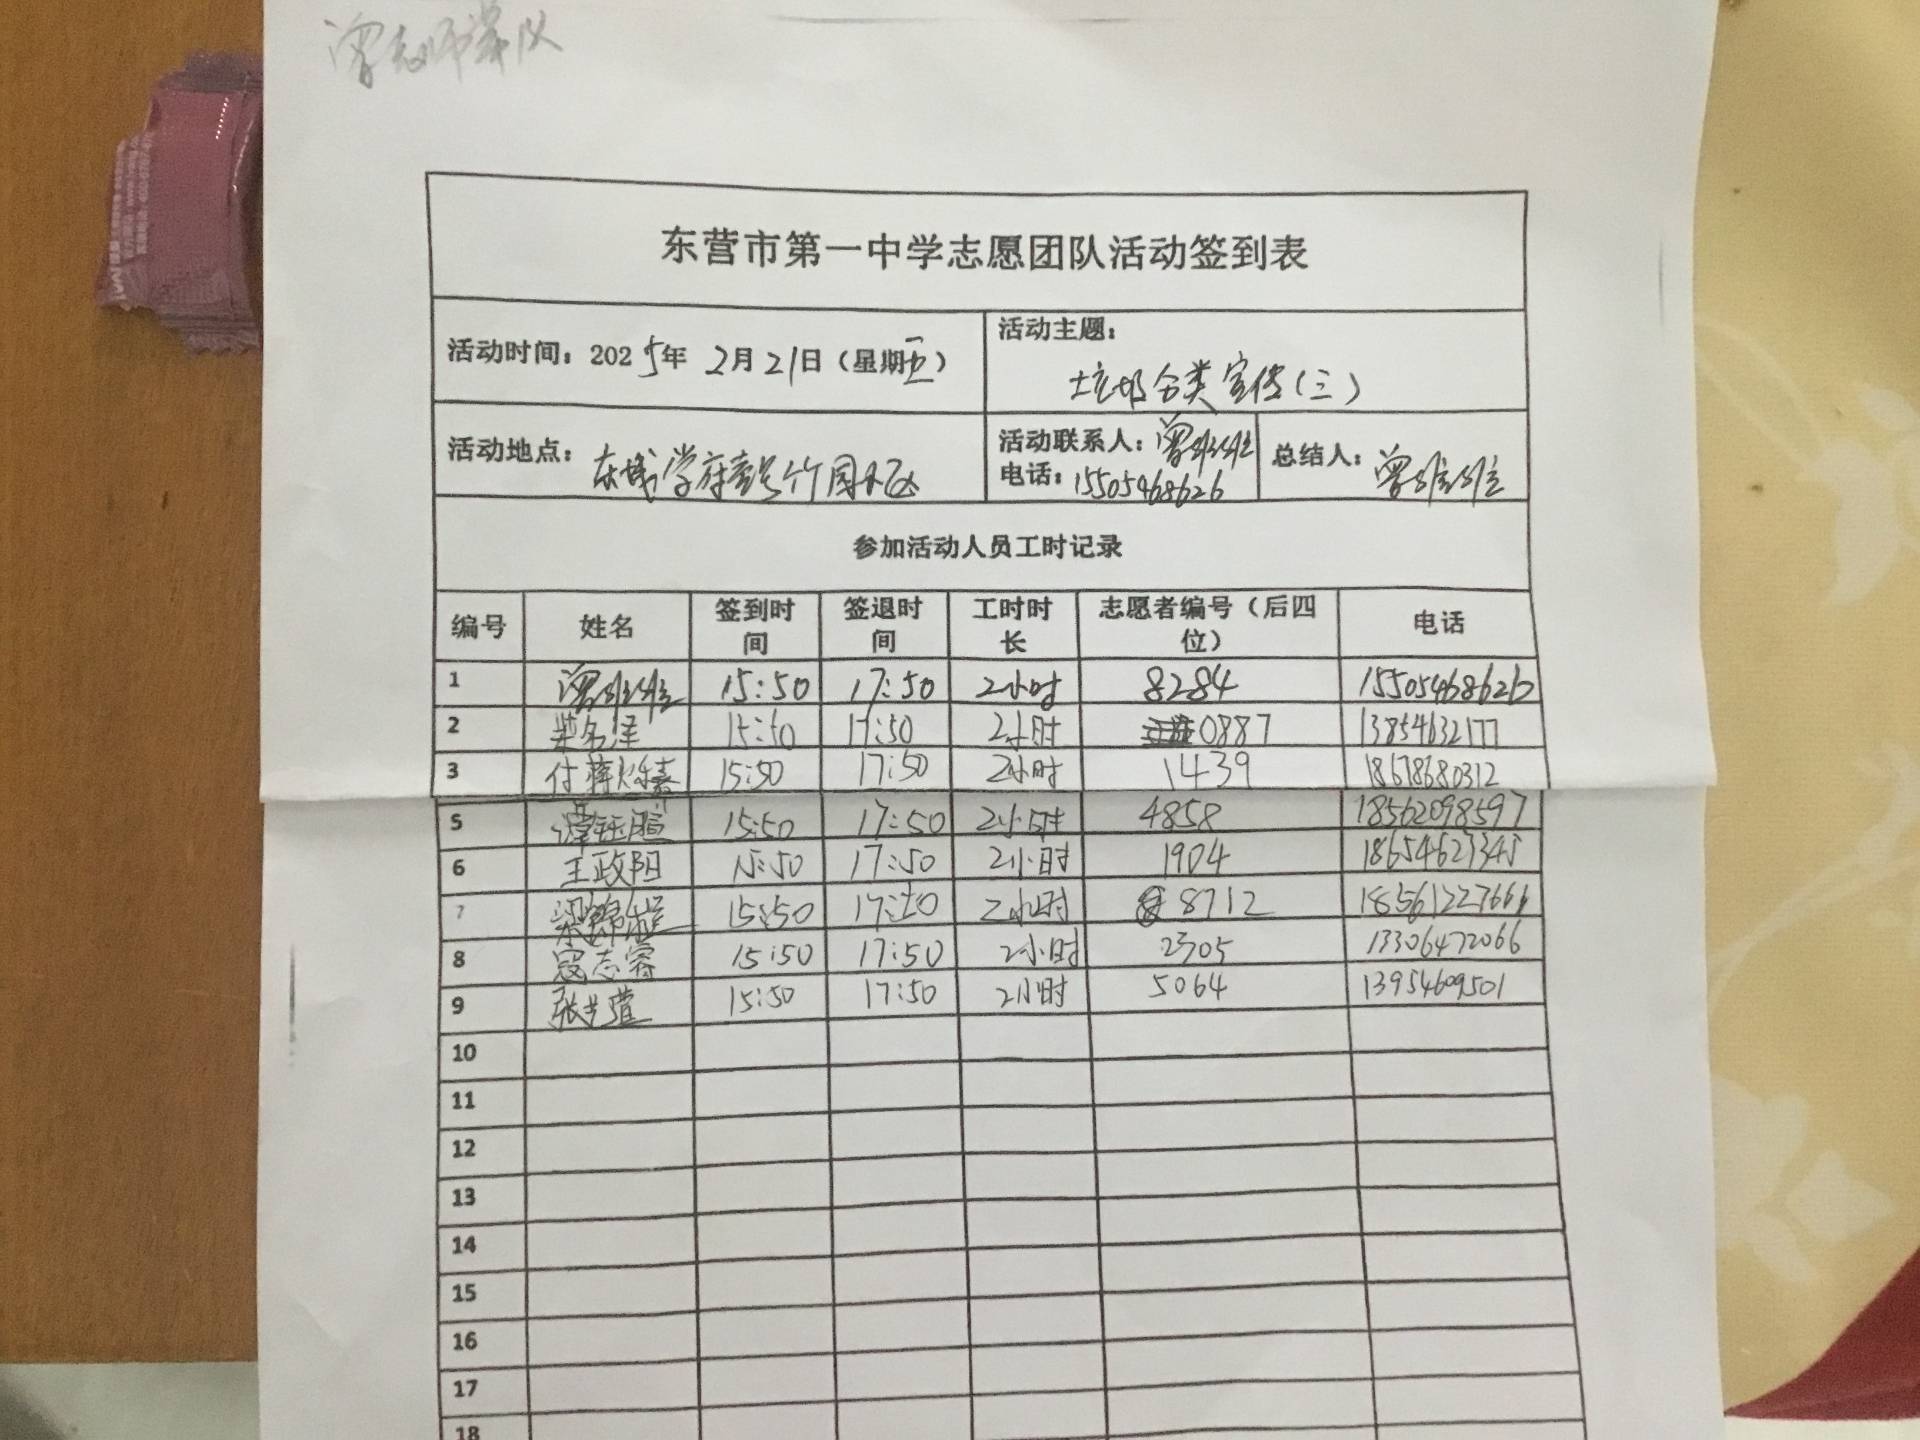 东营市第一中学志愿团队活动签到表
活动时间：2025年 2月21日（星期五） 活动主题：
垃圾分类宣传（三）
活动地点： 东城学府壹号竹园小区 活动联系人：曾班班 总结人：曾班班
电话：15505468626
参加活动人员工时记录
编号 姓名 签到时间 签退时间 工时时长 志愿者编号（后四位） 电话
1 曾班班 15:50 17:50 2小时 8284 15505468626
2 柴名泽 15:50 17:50 2小时 0887 13854632177
3 付 15:50 17:50 2小时 1439 18678680312
5 谭钰瑄 15:50 17:50 2小时 4858 18562098597
6 王政阳 15:50 17:50 2小时 1904 18654627345
7 梁锦 15:50 17:50 2小时 8712 18561227666
8 寇志睿 15:50 17:50 2小时 2305 13306472066
9 张艺萱 15:50 17:50 2小时 5064 13954609501
10
11
12
13
14
15
16
17
18